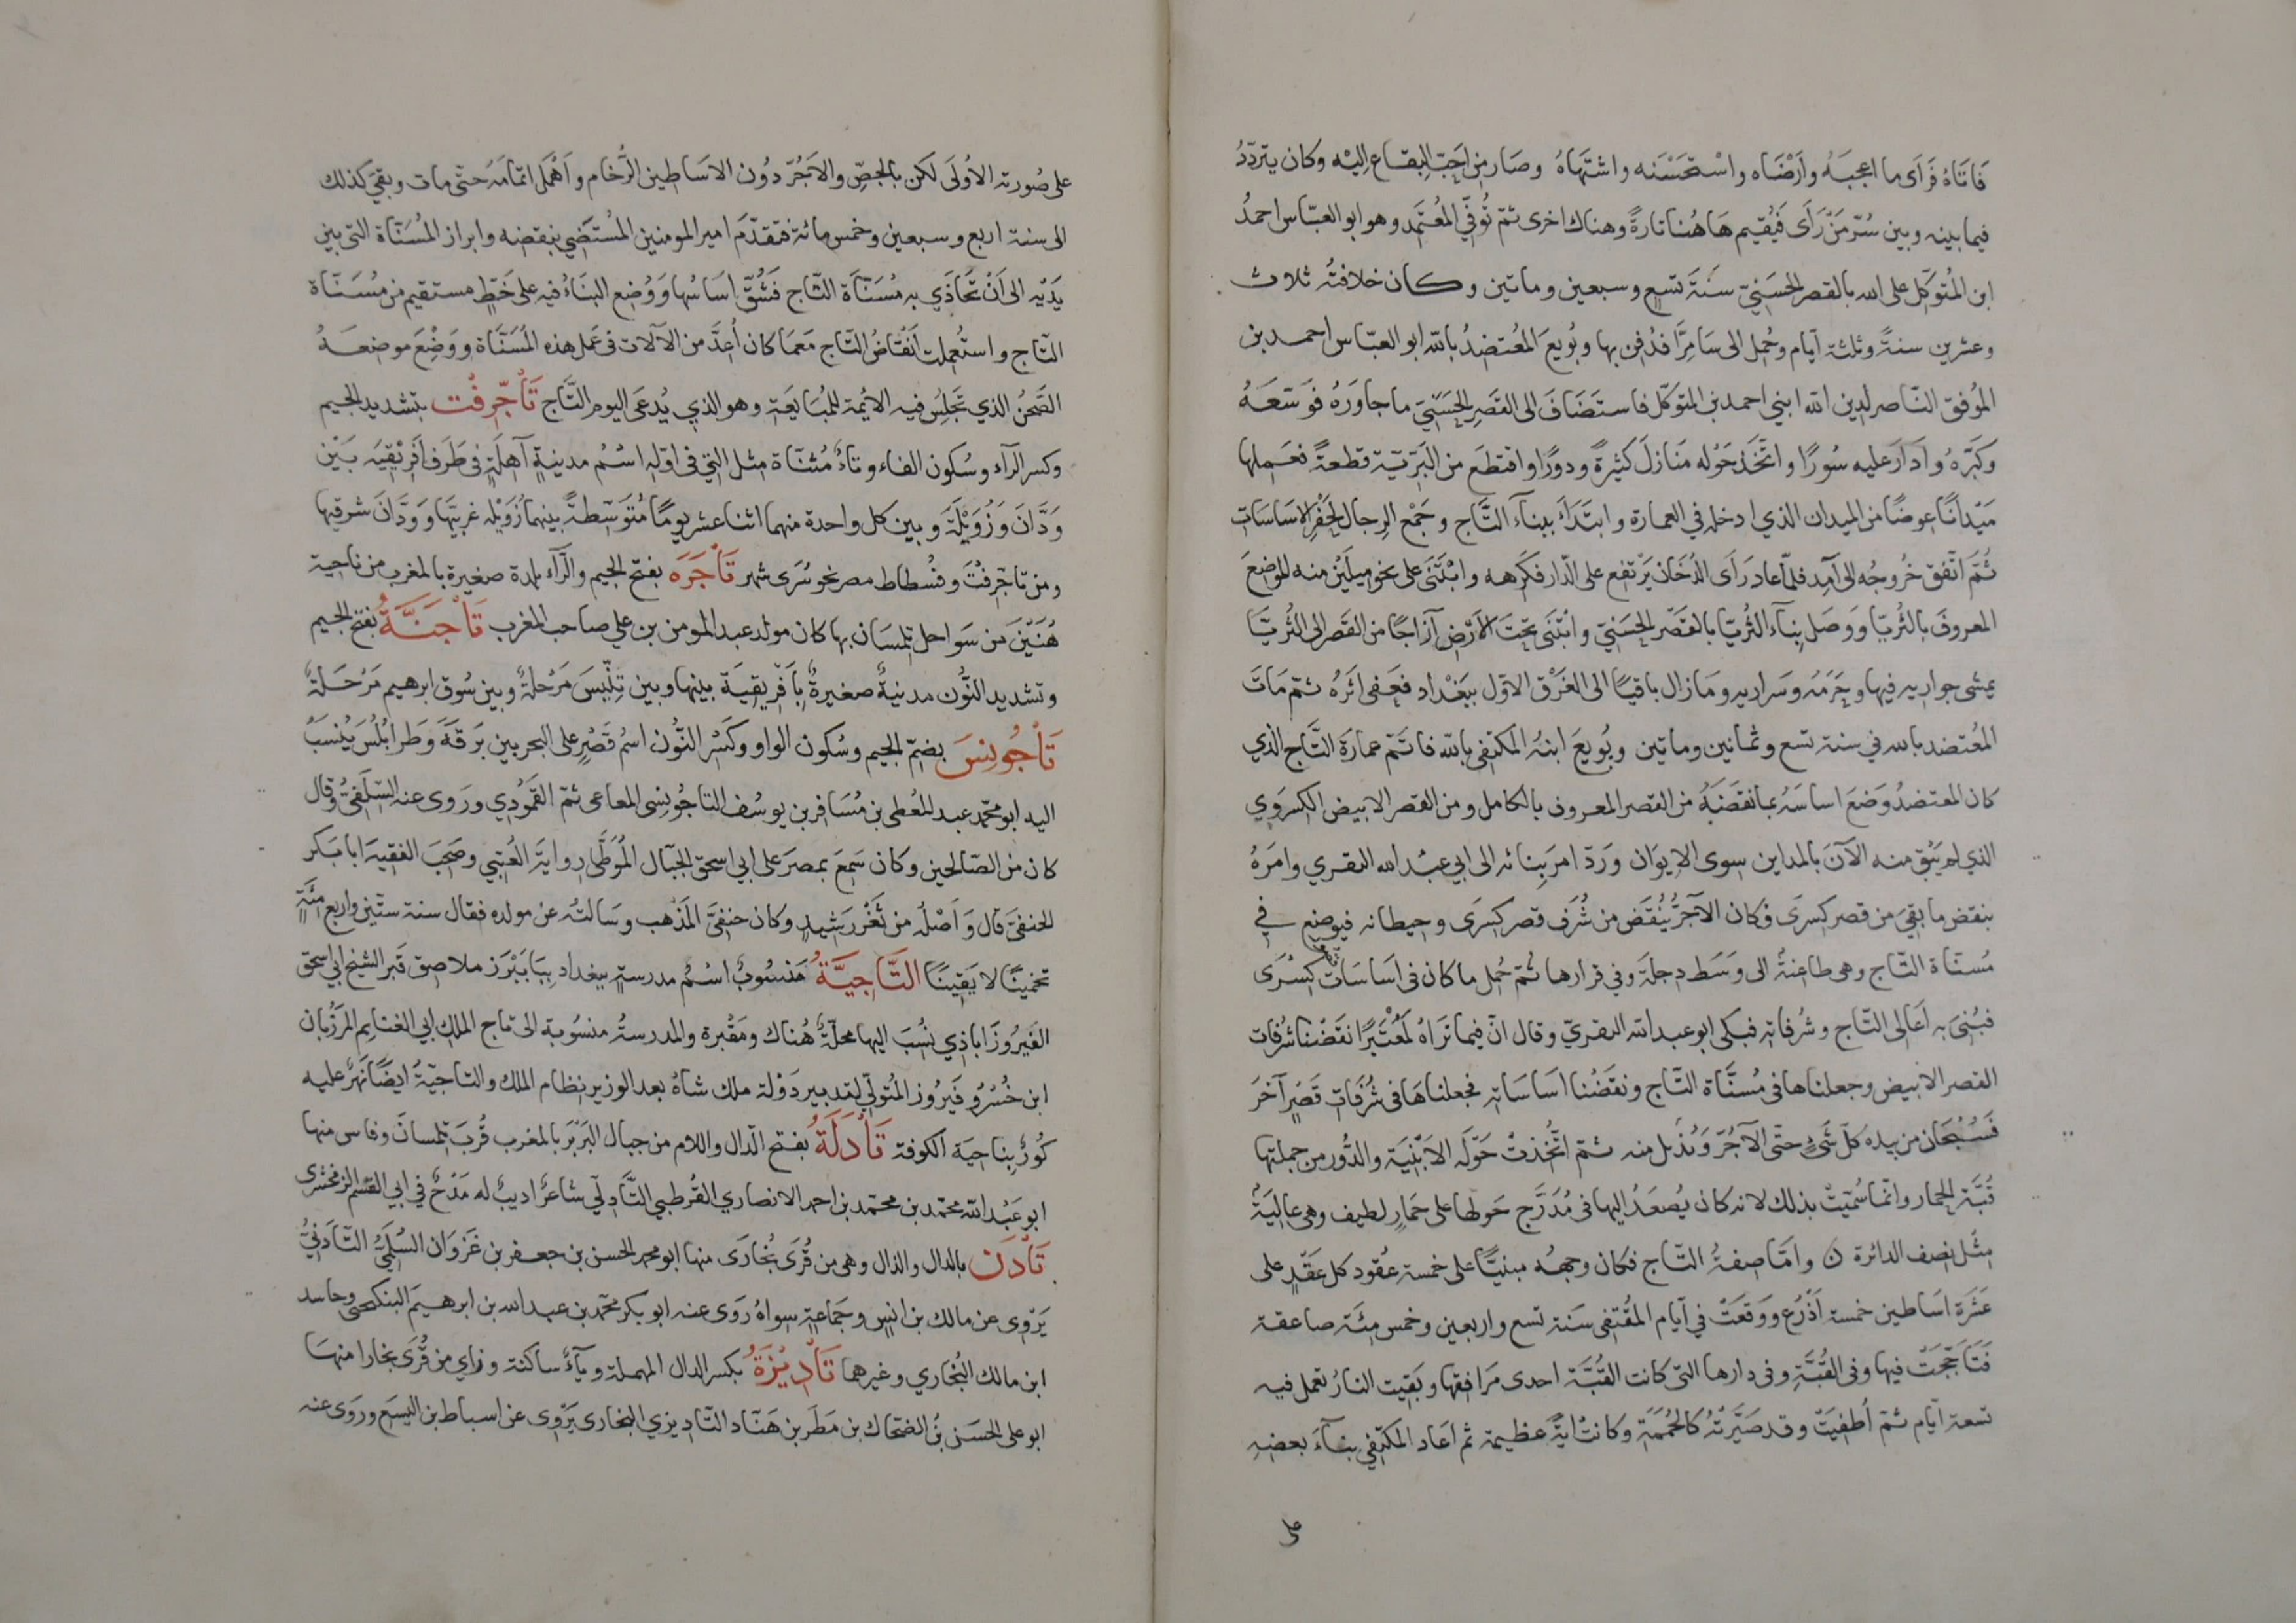 فَاتَاهُ فَرَأى ما اعجبَهُ وأرْضَاه واسْتحَسْنَه واشتَهَاهُ وصَار من اَحَبّ البِقاع اِليْه وكان يتردّدُ
فيما بينه وبين سُرّ مَنْ رَأى فيُقيم هَا هُنا تارةً وهناك اخرى ثمّ تُوفّي المُعْتَمد وهو ابو العبّاس احمدُ
ابن المُتوكّل على الله بالقصر الحَسَنيّ سَنَةَ تسَعٍ وسبعين وماتين وكان خلافتُه ثلاث
وعشرين سنةً وثلثة ايّام وحُمل الى سَامِرَّا فدُفن بها وبُويعَ المُعتضدُ بالله ابو العبّاس احمد بن
المُوفق النّاصر لدين الله ابني احمد بن المتوكّل فاستَضَافَ الى القَصرِ الحَسَنّي ما جاوَرَهُ فوَسّعَهُ
وكبَّرهُ واَدَارَ عليه سُورًا واتّخذَ حَوْله مَنازلَ كثيرةً ودورًا واقتطَع من البَرّيّة قطعةً فعَملها
مَيْدانًا عوضًا من الميدان الذي ادخله في العمارة وابتَدَاَ ببناءَ التَّاج وجَمْعِ الرِجال لحَفْر الاَسَاسَاتِ
ثُمّ اتّفق خرُوجُه الى آمِد فلمّا عاد رَأى الدُّخَان يَرْتفع على الدّار فكرَهه وابْتَنَى على نحو ميلَيْن منه للموضعَ
المعروفَ بالثُّريّا ووَصَل بنآء الثُريّا بالقصَر الحَسَنيّ وابْتَنى تحَتَ الاَرْض آزاجًا من القَصر الى الثُريّا
يمشى جواريه فيها وحَرَمُه وسَراريه ومَا زال باقيًا الى الغَرْق الاوّل ببَغْداد فعَفى اثَرُه ثمّ مَاتَ
المُعتضد بالله في سنة تسع وثمانين وماتين وبُويعَ ابنهُ المكتفى بالله فاتَمّ عمارَة التّاج الذي
كان المعتضدُ وَضَعَ اساسَهُ بما نقَضَهُ من القصر المعروف بالكامل ومن القصر الابيض الكسروي
الذي لم يَبْق منه الآنَ بالمداين سوى الايوَان ورَدّ امرَ بِنائه الى ابي عبْد الله النقري وامَرهُ
بنقض ما بقيَ من قصر كسرَى فكان الآجرّ يُنقَض من شُرَف قصر كِسرَى وحيطانه فيوضع في
مُسنّاة التّاج وهى طاعنةٌ الى وَسَط دجلَة وفي قرارها ثُمّ حُمل ما كان في اَسَاسَات كِسْرَى
فبُنيَ به اَعَالى التّاج وشُرفاته فبكى ابو عبد الله النقريّ وقال انّ فيما نَرَاهُ لَمُعْتَبرًا نقَضْنا شُرفات
القصر الابيض وجعلناها في مُسنّاة التّاج ونقَضْنا اسَاسَاته فجعلناهَا في شُرُفاتِ قَصْرٍ آخرَ
فَسُبْحَان من بيده كلّ شَىْءٍ حتّى الآجُرّ وَنُذيل منه ثمّ اتُّخذتْ حَوْلَه الاَبْنيَة والدُّور من جملتها
قُبَّة الحمار وانّما سُميّت بذلك لانه كان يُصعَدُ اليها في مُدَرَّج حَولها على حمَارٍ لطيف وهى عاليَةٌ
مثْل نصف الدائرة ن وامّا صِفةُ التّاج فكان وجههُ مبنيًّا على خمسة عُقود كل عَقْدٍ على
عَشَرة اَسَاطين خمسة اَذرُع ووَقعَتْ في اَيّام المُقتفى سَنة تسع واربعين وخمس مئة صاعقة
فتَاَجّجَتْ فيها وفي القُبَّةِ وفي دارها التى كانت القُبَّة احدى مَرَافقها وبَقيَت النارُ تعمل فيه
تسعة ايّام ثمّ اُطفيَتْ وقد صَيَّرتْهُ كالحُمَمَة وكانتْ ايةً عظيمة ثم اعَاد المكتفي بنآءَ بعضهِ
على
على صُورته الاُولَى لكن بالجصّ والاَجُرّ دُون الاسَاطين الرُّخام واَهْمل اتمَامهُ حتّى مات وبقيَ كذلك
الى سنة اربع وسبعين وخمس مائة فتقدّمَ امير المومنين المُستَضي بنقضه وابراز المُسَنّاة التى بين
يَدَيْه الى اَنْ تحَاذي به مُسَنّاَة التّاج فشُقّ اسَاسُها وَوُضع البنَاءُ فيه على خَطٍّ مستقيم من مُسَنّاة
التّاج واستُعملت اَنْقَاضُ التّاج مَعَمَا كان أُعِدَّ من الآلات في عَمل هذه المُسَنَّاة ووُضِعَ موضعَهُ
الصَّحنُ الذي تجَلِسُ فيه الائمة للمُبَايَعة وهو الذي يُدعَى اليوم التّاج تَأجّرِفْت بتشديد الجيم
وكسر الرآء وسُكون الفاء وتاءٌ مُثنّاة مثل التي في اوّله اسْمُ مدينةٍ آهلَةٍ في طَرف افريقية بَيْن
وَدَّانَ وَزُوَيْلةَ وبين كل واحدة منهما اثنا عشر يومًا مُتوَسّطةً بينهما زُوَيْله غربيَّها ووَدَّانَ شرقيها
ومن تاجّرِفْتَ وفُسْطاط مصر نحو سُرَى شهر تَأجَرَه بفتح الجيم والرآء بلدة صغيرة بالمغرب من ناحية
هُنَيْنَ من سَواحل تِلمسَان بها كان مولد عبد المومن بن علي صاحب المغرب تَأجَنَّةُ بفتح الجيم
وتشديد النُّون مدينةٌ صغيرةٌ بِاَفريقيَة بينها وبين تنِّيسَ مَرْحلةٌ وبين سُوق ابرهيم مَرْحَلةٌ
تَأجُونِسَ بضمّ الجيم وسُكون الواو وكَسْر النُّون اسمُ قصْرٍ على البحر بين بَرقةَ وَطرابُلُسَ يُنسَبُ
اليه ابو محمّد عبد المعُطى بن مُسَافر بن يوسُف التاجُونِسى المعاعى ثمّ القمّوُدِي ورَوى عنه السّلَفيّ وقال
كان من الصّالحين وكان سَمعَ بمصرَ على ابي اسحق الحبّال المُوَطّأ رِوايةَ العُتبي وصَحبَ الفقيهَ ابا بَكر
الحنفىَ قال وَاَصْلُه من ثَغْر رَشيدٍ وكان حنفىَّ المَذهب وسَالتُه عن مولده فقال سنة ستّين واربع مئةٍ
تخمينًا لا يَقينًا التَّاجِيَّةُ مَنسُوبٌ اسْمُ مدرسةٍ ببغداد ببَابَ ابْرَز ملاصق قَبر الشيخ ابي اسحق
الفَيرُوزَاباذِي نُسبَ اليها محلّةٌ هُناك ومَقْبرة والمدرسةُ منسُوبة الى تاج الملك ابي الغنايم المَرزُبان
ابن خُسْرُو فَيرُوز المُتولّي لتدبير دَوْلة ملك شاهْ بعد الوزير نظام الملك والتاجيّةُ ايضًا نهَرٌ عليه
كُورٌ بناحيَة الكوفة تَأدَلَةُ بفتح الدال واللام من جبال البَرْبَر بالمغرب قُربَ تِلمسانَ وفاس منها
ابو عبْد الله محمّد بن محمّد بن احمد الانصاري القُرطبي التَّادِلّي شاعرٌ اديبٌ له مَدْحٌ في ابي القسم الزمخشرى
تَأدَن بالدال والذال وهى من قُرَى بُخارَى منها ابو محمد الحسن بن جعفر بن غَزوَان السُلَميُّ التّاَدنيُّ
يَرْوى عن مالك بن انيس وجَماعةٍ سواهُ رَوَى عنه ابو بكر محمّد بن عبد الله بن ابرهيمَ البنكحى وحاسد
ابن مالك البُخاري وغيرهما تَأدِيْزَةُ بكسر الدال المهملة وياءٌ ساكنة وزاي من قُرَى بخارا منهَا
ابو على الحَسَن بنُ الضحّاك بن مَطَر بن هَنّاد التّادِيزي البخارى يَرْوِى عن اسباط بن اليسَع ورَوى عنه